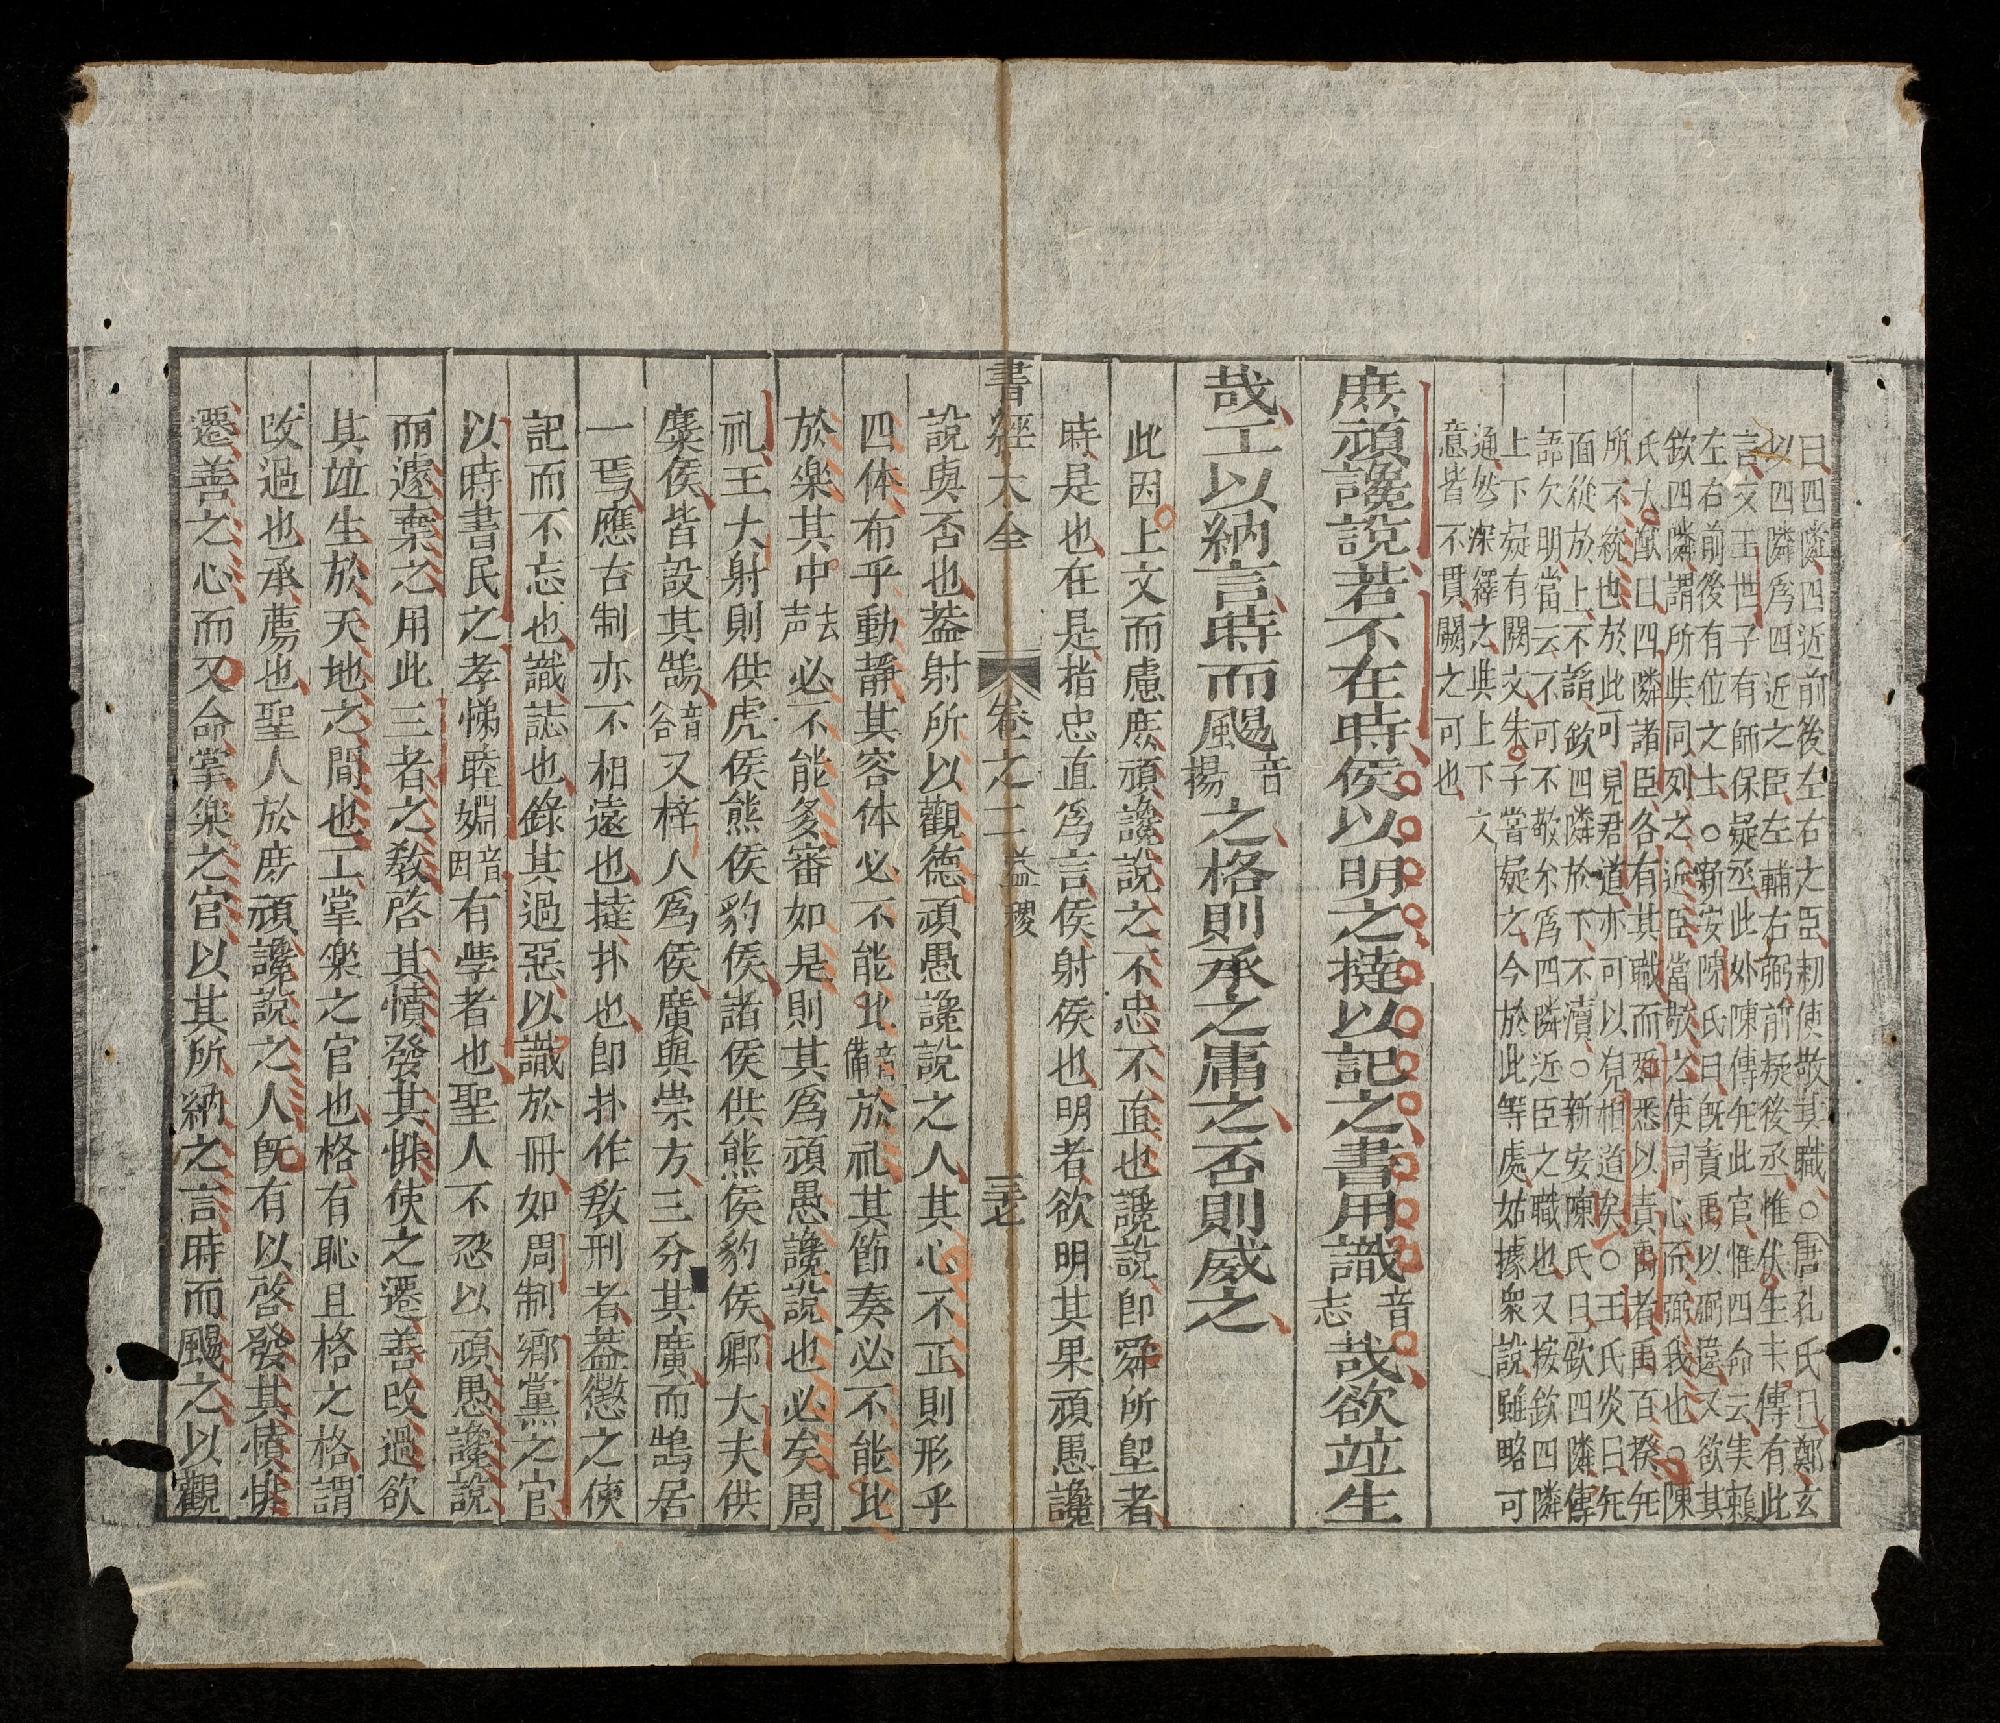 曰四隣四近前後左右之臣勑使敬其職○唐孔氏曰鄭玄
以四隣爲四近之臣左輔右弼前疑後丞惟伏生書傳有此
言文王世子有師保疑丞此外陳傳無此官惟四命云實賴
左右前後有位之士○新安陳氏曰既責禹以弼違又欲其
欽四隣謂所與同列之近臣當敬之使同心而弼我也○陳
氏大猷曰四隣諸臣各有其職而惡悉以責禹者禹百揆無
所不統也於此可見君道亦可以見相道矣○王氏炎曰無
面從於上不諂欽四隣於下不瀆○新安陳氏曰欽四隣傳
語欠明當云不可不敬尒爲四隣近臣之職也又按欽四隣
上下疑有闕文朱子嘗疑之今於此等處姑據衆說雖略可
通然深繹之與上下文
意皆不貫闕之可也
庶頑讒說若不在時侯以明之撻以記之書用識音志哉欲竝生
哉工以納言時而颺音揚之格則承之庸之否則威之
此因上文而慮庶頑讒說之不忠不直也讒說卽舜所堲者
時是也在是指忠直爲言侯射侯也明者欲明其果頑愚讒
書經大全 卷之二 益稷 三七
說與否也蓋射所以觀德頑愚讒說之人其心不正則形乎
四体布乎動靜其容体必不能比音備於礼其節奏必不能比
於樂其中去声必不能多審如是則其爲頑愚讒說也必矣周
礼王大射則供虎侯熊侯豹侯諸侯供熊侯豹侯卿大夫供
麋侯皆設其鵠音谷又梓人爲侯廣與崇方三分其廣而鵠居
一焉應古制亦不相遠也撻扑也卽扑作敎刑者蓋懲之使
記而不忘也識誌也錄其過惡以識於冊如周制鄉黨之官
以時書民之孝悌睦婣音因有學者也聖人不忍以頑愚讒說
而遽棄之用此三者之敎啓其憤發其悱使之遷善改過欲
其竝生於天地之間也工掌樂之官也格有恥且格之格謂
改過也承薦也聖人於庶頑讒說之人旣有以啓發其憤悱
遷善之心而又命掌樂之官以其所納之言時而颺之以觀